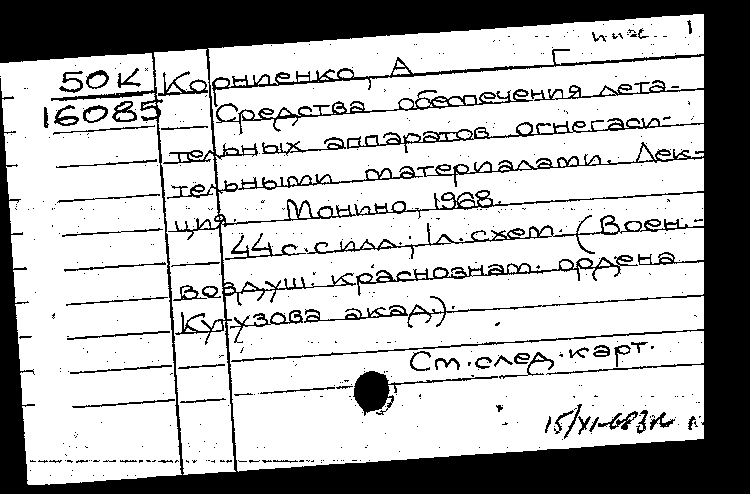 1
50К Корниенко, А Г
16085 Средства обеспечения лета-
тельных аппаратов огнегаси-
тельными материалами. Лек-
ция. Монино, 1968.
44 с. с илл.; 1 л. схем. (Воен.-
воздуш. краснознам. ордена
Кутузова акад.).
См. след. карт.